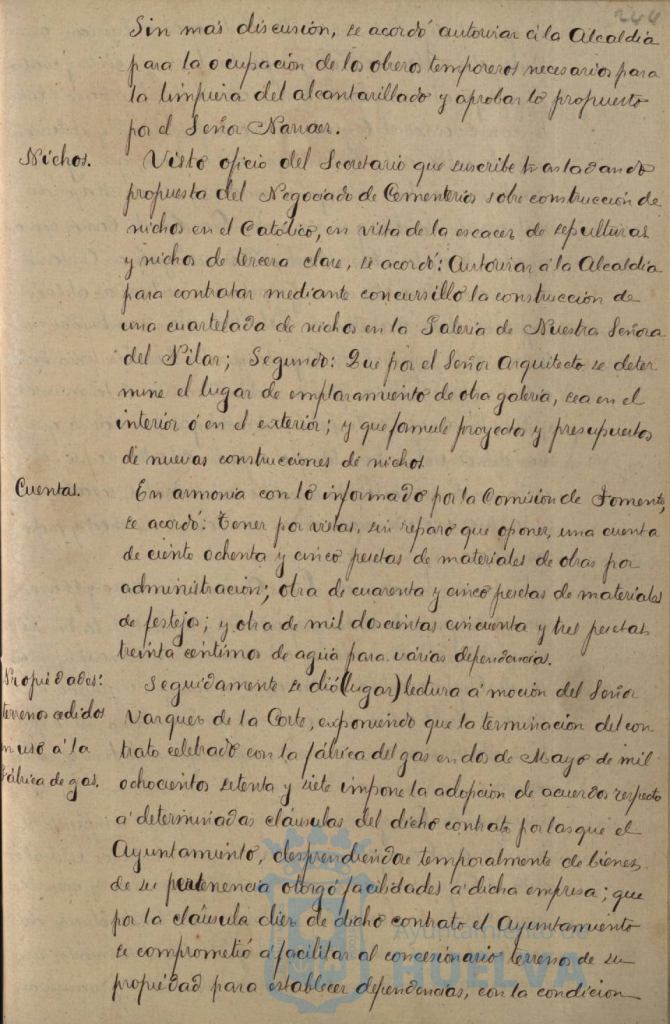 244
Sin mas discusión, se acordó autorizar á la Alcaldia
para la ocupación de los obreros temporeros necesarios para
la limpieza del alcantarillado y aprobar lo propuesto
por el Señor Narvaez.
Nichos. Visto oficio del Secretario que suscribe trasladando
propuesta del Negociado de Cementerios sobre construcción de
nichos en el Católico, en vista de la escacez de sepulturas
y nichos de tercera clase, se acordó: Autorizar á la Alcaldia
para contratar mediante concursillo la construcción de
una cuartelada de nichos en la Galeria de Nuestra Señora
del Pilar; Segundo: Que por el Señor Arquitecto se deter
mine el lugar de emplazamiento de otra galeria, sea en el
interior ó en el exterior; y que formule proyectos y presupuestos
de nuevas construcciones de nichos
Cuentas. En armonia con lo informado por la Comisión de Fomento,
se acordó: Tener por vistas, sin reparo que oponer, una cuenta
de ciento ochenta y cinco pesetas de materiales de obras por
administración; otra de cuarenta y cinco pesetas de materiales
de festejos; y otra de mil doscientas cincuenta y tres pesetas
treinta centimos de agua para varias dependencias.
Propiedades: Seguidamente se dió (lugar) lectura á moción del Señor
terrenos cedidos Vazquez de la Corte, exponiendo que la terminación del con
en uso á la trato celebrado con la fábrica del gas en dos de Mayo de mil
fábrica de gas. ochocientos setenta y siete impone la adopción de acuerdos respecto
á determinadas cláusulas del dicho contrato por las que el
Ayuntamiento, desprendiendose temporalmente de bienes
de su pertenencia otorgó facilidades á dicha empresa; que
por la cláusula diez de dicho contrato el Ayuntamiento
se comprometió á facilitar al concesionario terreno de su
propiedad para establecer dependencias, con la condición
Ayuntamiento de
HUELVA